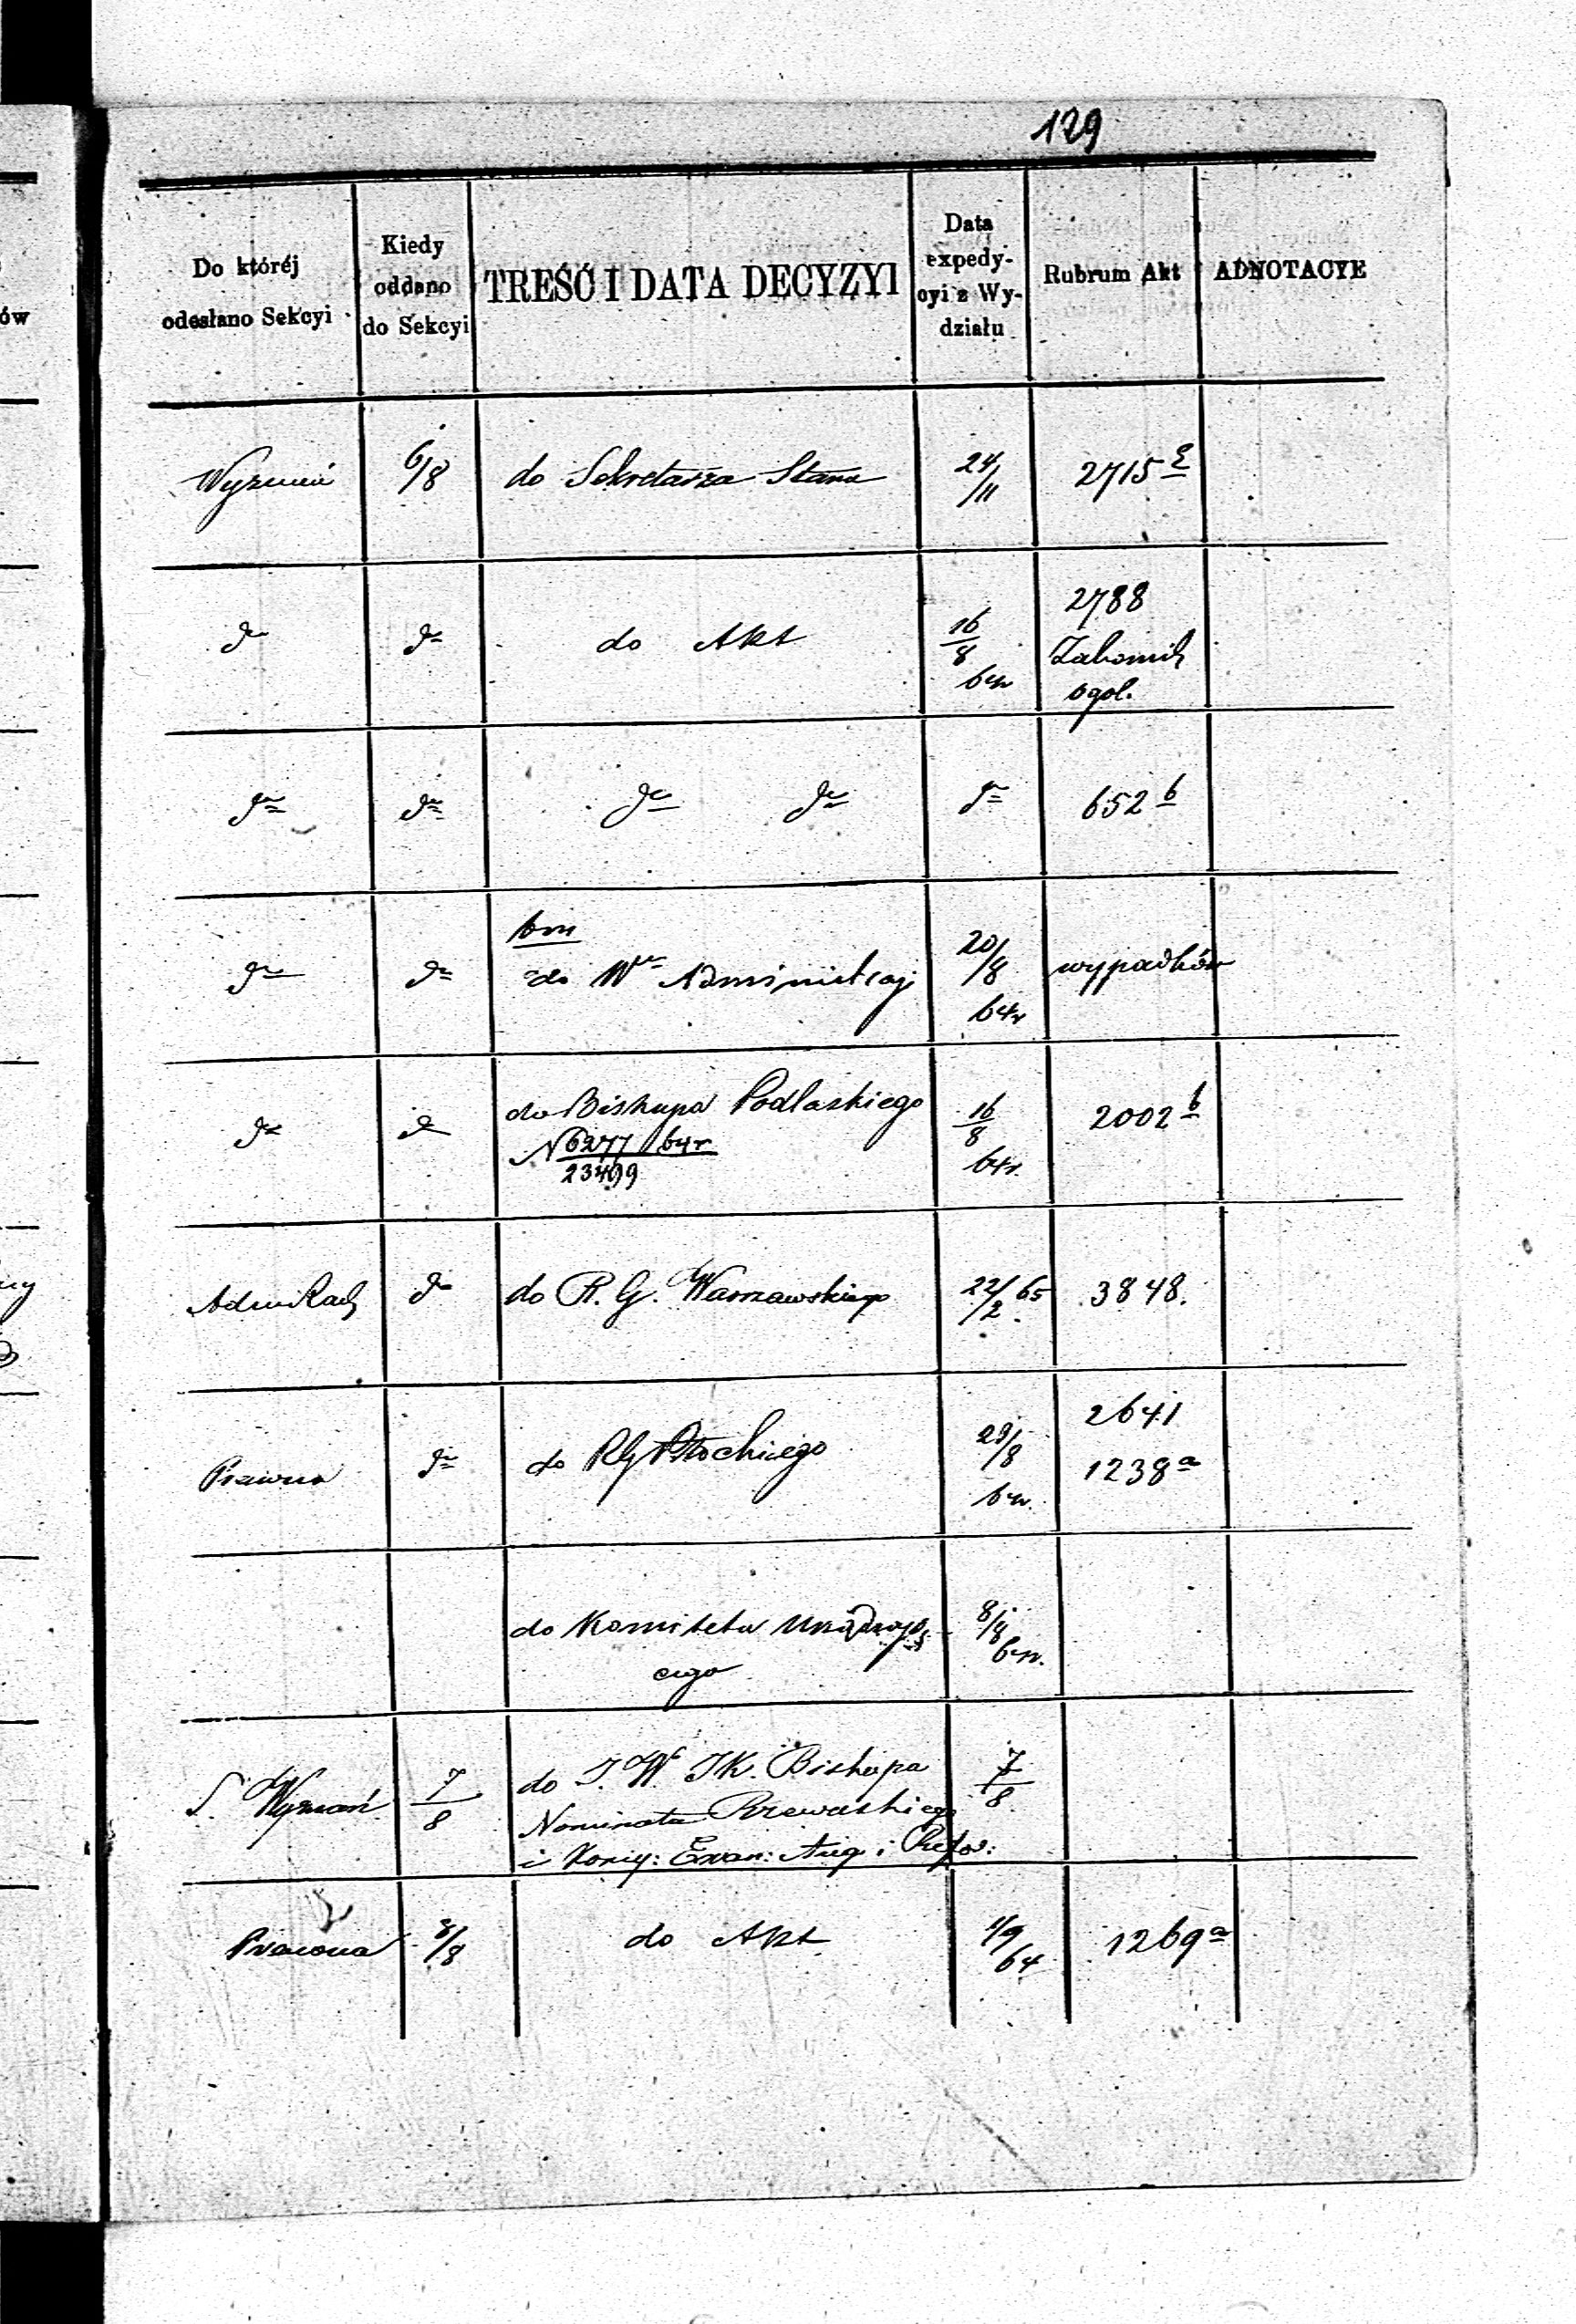 129
Do któréj
odesłano Sekcyi
Kiedy
oddano
do Sekcyi
TREŚĆ I DATA DECYZYI
Data
expedy-
cyi z Wy-
działu
Rubrum Akt
ADNOTACYE
ów
Wyznań
6/8
do Sekretarza Stanu
24/11
2715
do
do
do Akt
16/8
64r
2788
ogol.
do
do
do do
do
652 b
do
do
do Administracyi
20/8
64r
wypadków
do
do
do Biskupa Podlaskiego
N 6277/23499 64r
16/8
64r.
2002 b
do
do R. G. Warszawskiego
22/2 65
3848.
Prawna
do
do RG Płockiego
29/8
64r.
2641
1238 a
do Komitetu Urządzają
cego
8/8
64r.
S. Wyznań
7/8
do J. W. JK. Biskupa
Nominata Rzewuskiego
i Konsy: Ewan: Aug i Refor:
7/8
Prawna
8/8
do Akt
1/9
64
1269 a